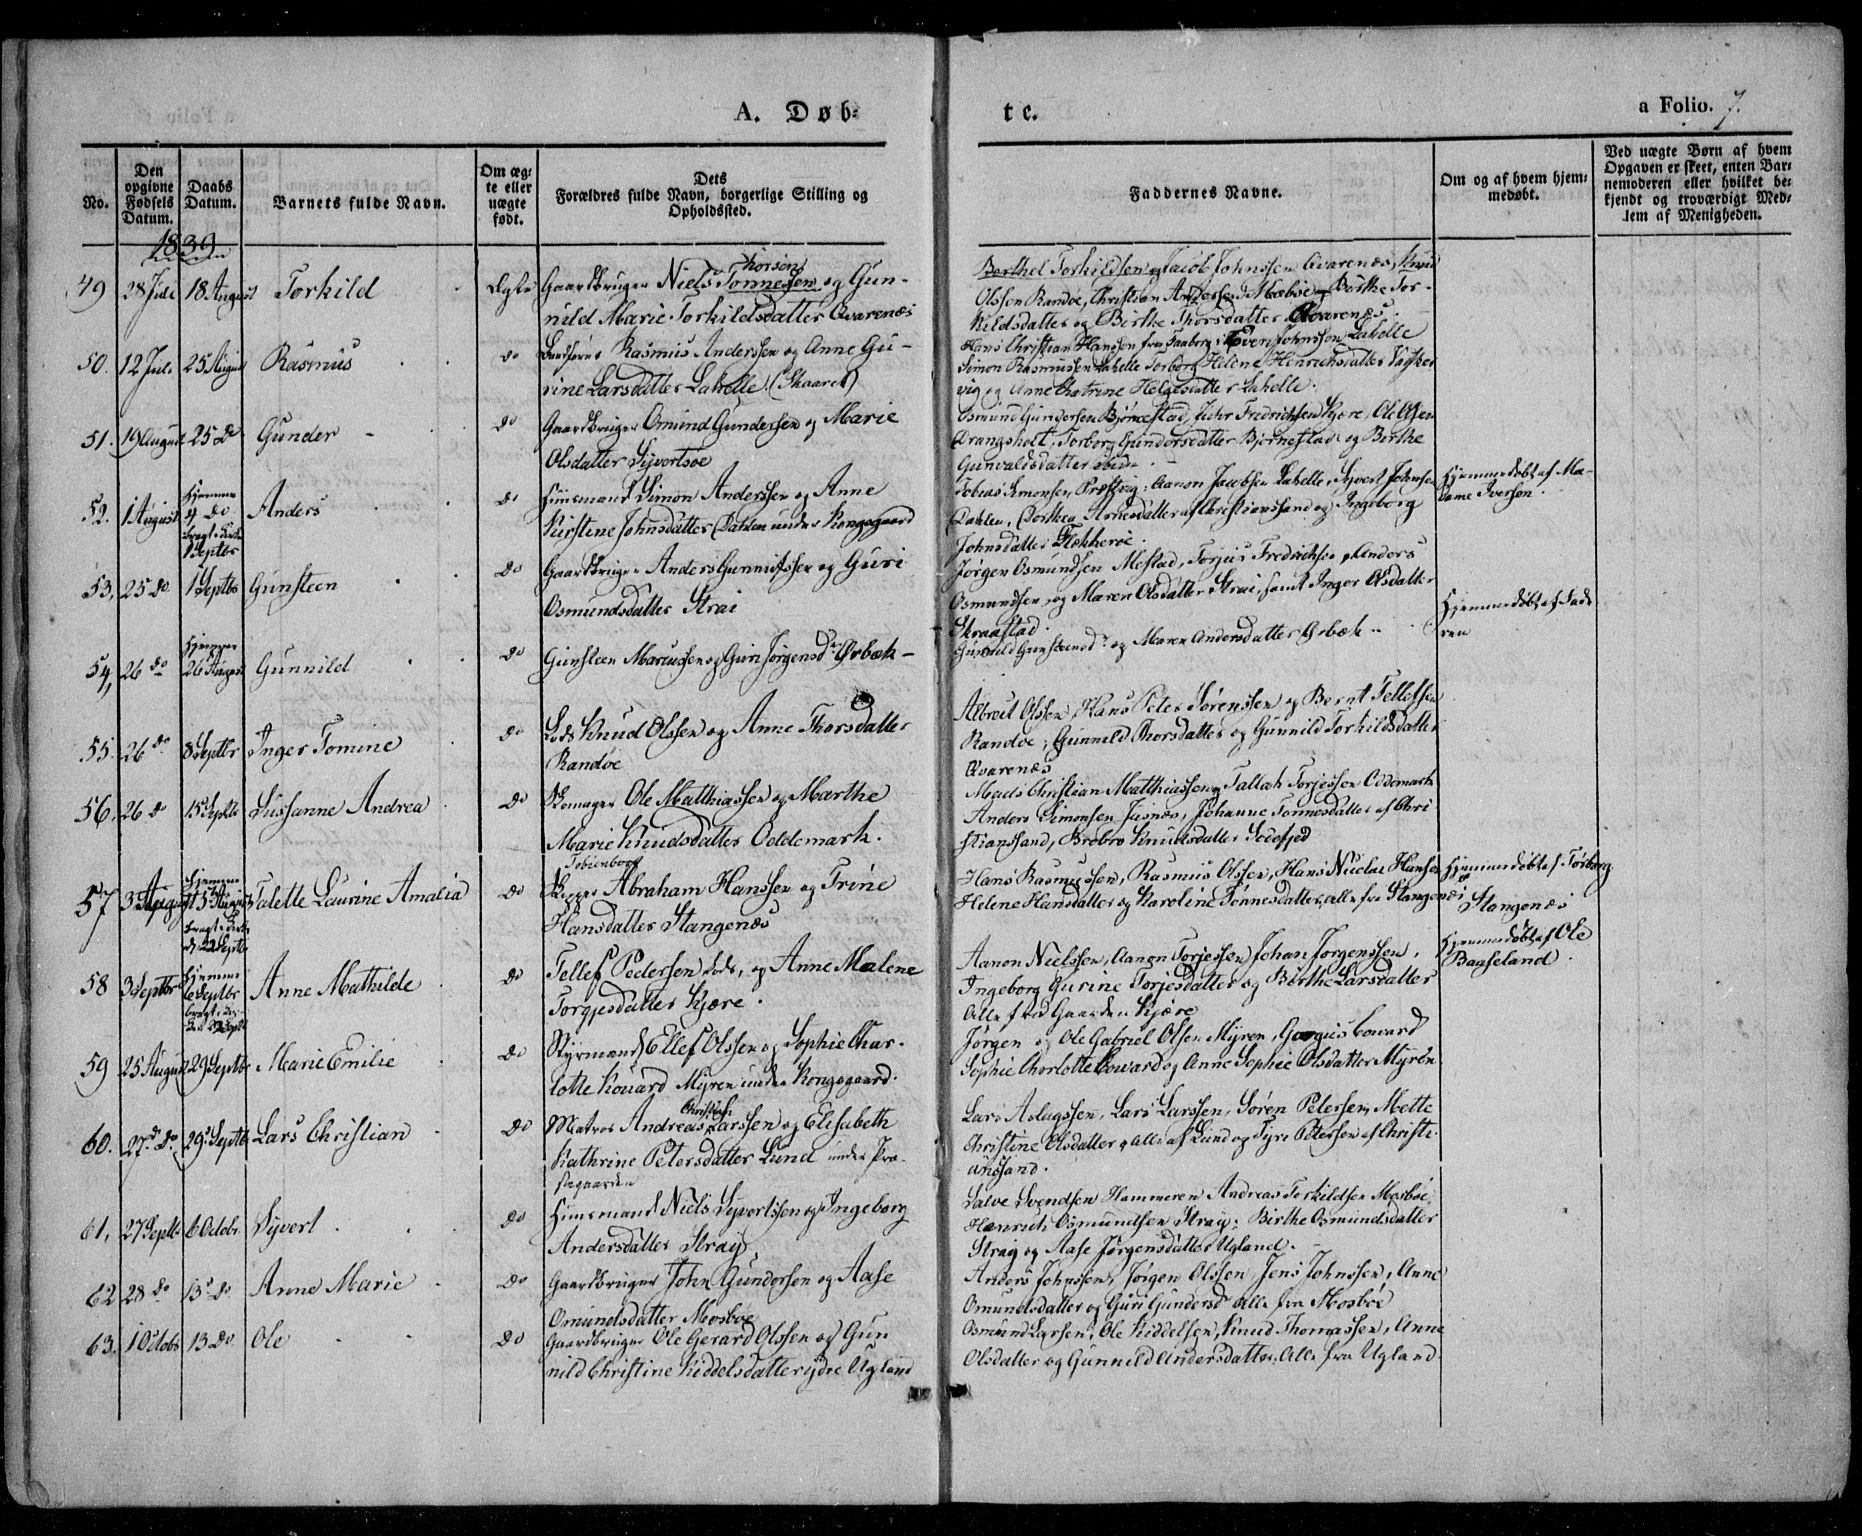 A. Døb-
te.
a Folio. 7.
No.
Den opgivne Fødsels Datum.
Daabs Datum.
Barnets fulde Navn.
Om ægte eller uægte født.
Dets Forældres fulde Navn, borgerlige Stilling og Opholdssted.
Faddernes Navne.
Om og af hvem hjemmedøbt.
Ved uægte Børn af hvem Opgaven er skeet, enten Barnemoderen eller hvilket bekjendt og troværdigt Medlem af Menigheden.
1839
49 28 Juli 18 August Torkild Ægte Gaardbruger Niels Tonnesen Thorsen og Gun-
nild Marie Torkildsdatter Qvarenæs
Berthel Torkildsen og Jacob Johnssen Qvarenæs, Knud
Olssen Randøe, Christian Anderssen Mæbøe, Birthe Tor-
kildsdatter og Birthe Thorsdatter Qvarenæs.
50. 12 Juli 25 August Rasmus do Rasmus Anderssen og Anne Gu-
rine Larsdatter Lahelle (Skaaret)
Hans Christian Hanssen fra Faaborg, Even Johnssen Lahelle
Simon Rasmussen Lahelle Torborg Helene Henrichsdatter
vig og Anne Chatrine Helgesdatter Lahelle.
51. 19 August 25 do Gunder do Gaardbruger Omund Gundersen og Marie
Olsdatter Syvertsøe
Osmund Gundersen Bjørnestad, Fredrichsen Kjære, Ole Olsen
Drangsholt, Torborg Gundersdatter Bjørnestad og Birthe
Gunvaldsdatter ibid.
52. 1 August Hjemme 4 do bragt i Kirke 1 Septbr Anders do Huusmand Simon Anderssen og Anne
Kirstine Johnsdatter Dahlen under Kongsgaard
Tobias Simonsen Præstvig, Aanon Jacobsen Lahelle, Syvert Johnsen
Dahlen, Dorthea Arnesdatter af Christianssand og Ingeborg
Johnsdatter Flekkerøe.
Hjemmedøbt af Ma-
dame Iversen.
53, 25 do 1 Septbr Gunsteen do Gaardbruger Anders Gunnufssen og Guri
Osmundsdatter Strai
Jørgen Osmundsen Mestad, Torjus Fredrichsen, Anders
Osmundsen og Maren Olsdatter Strai, samt Inger Olsdatter
Straastad.
54, 26 do Hjemme 26 August Gunnild do Gunsteen Marcussen og Guri Jørgensd. Ørbæk
Gunnild Gunsteensd. og Maren Andersdatter Ørbæk
Hjemmedøbt af Fade-
ren
55. 26 do 8 Septbr Inger Tomine do Lods Knud Olssen og Anne Thorsdatter
Randøe
Albreit Olssen, Hans Peter Sørenssen og Bernt Tellefsen
Randøe, Gunnild Thorsdatter og Gunnild Torkildsdatter
Qvarenæs
56, 26 do 15 Septbr Sussanne Andrea do Skomager Ole Matthiassen og Marthe
Marie Knudsdatter Oddemark.
Mads Christian Matthiassen og Tallak Torjessen Oddemark
Anders Simonsen Justnæs, Johanne Tønnesdatter af Chri
stianssand, Brobro Knudsdatter
57 3 August Hjemme 5 August bragt i Kirke d. 22 Septbr Talette Laurine Amalia do Skipper Abraham Tobienborg Hanssen og Trine
Hansdatter Stangenæs
Hans Rasmussen, Rasmus Olssen, Hans Nicolai Hansen
Helene Hansdatter og Karoline Tønnesdatter, alle fra Stangenæs
Hjemmedøbt af Torborg
Stangenæs
58 3 Septbr Hjemme 6 Septbr bragt i Kirken 22 Septbr Anne Mathilde do Tellef Pedersen Lods, og Anne Malene
Torgjesdatter Kjære.
Aanon Nielssen, Aanon Torjessen, Johan Jørgenssen,
Ingeborg Gurine Torjesdatter og Birthe Larsdatter
Alle fra Gaarden Kjære
Hjemmedøbt af Ole
Baaseland.
59 25 August 29 Septbr Marie Emilie do Styrmand Ellef Olssen og Sophie Char-
lotte Kouard Myren under Kongsgaard.
Jørgen og Ole Gabriel Olsen Myren, Gorgius Coward
Sophie Chorlotte Coward og Anne Sophie Olsdatter Myren
60. 27 do 29 Septbr Lars Christian do Matros Andreas Christian Larssen og Elisabeth
Kathrine Petersdatter Lund under Præ-
stegaarden
Lars Aslagssen, Lars Larssen, Søren Petersen, Mette
Christine Olsdatter, alle af Lund og Syr. Petersen af Christi-
anssand.
61, 27 Septbr 6 Octobr Syvert do Huusmand Niels Syvertssen og Ingeborg
Andersdatter Stray
Salve Svendsen Hammeren Andreas Torkildsen Mosbøe,
Henrich Osmundsen Stray, Birthe Osmundsdatter
Stray og Aase Jørgensdatter Ugland.
62 28 do 13 do Anne Marie do Gaardbruger John Gundersen og Aase
Omundsdatter Mosbøe
Anders Johnssen, Jørgen Olssen Jens Johnssen, Anne
Omundsdatter og Guri Gundersd. Alle fra Mosbøe
63. 1 Octobr 13 do Ole do Gaardbruger Ole Gerard Olssen og Gun
nild Christine Kiddelsdatter ydre Ugland
Osmund Larsen, Ole Kiddelsen, Knud Thomassen, Anne
Olsdatter og Gunnild Andersdatter, Alle fra Ugland.